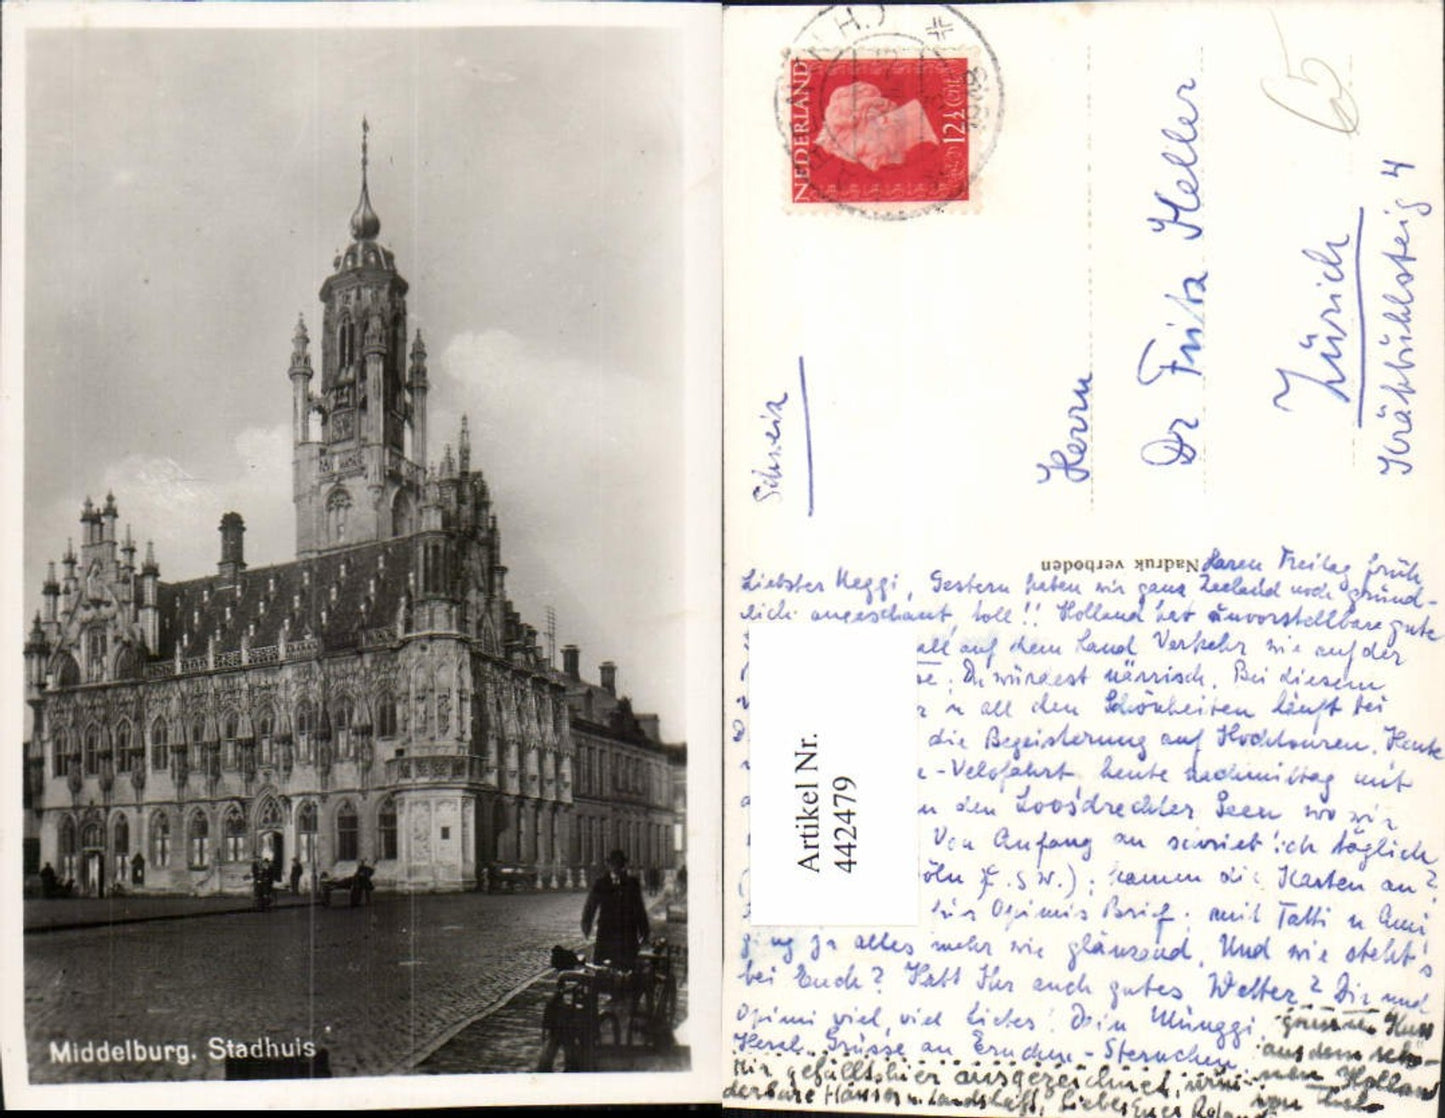 Middelburg. Stadhuis
NEDERLAND
12½ Ct
65
Schweiz
Herrn
Dr Fritz Heller
Zürich
Krähbühlsteig 4
Nadruk verboden
Artikel Nr.
442479
Laren Freitag früh
Liebster Heggi, Gestern haben wir ganz Zeeland noch gründ-
lich angeschaut, toll!! Holland hat unvorstellbare gute
all auf dem Land Verkehr wie auf der
se. Du würdest närrisch. Bei diesem
r u all den Schönheiten läuft bei
die Begeisterung auf Hochtouren. Heute
-Velofahrt, heute nachmittag mit
n den Loosdrechter Seen wo wir
Von Anfang an schrieb ich täglich
öln z. s w.); kamen die Karten an?
für Opimis Brief; mit Tatti u Ami
ging ja alles mehr wie glänzend. Und wie steht's
bei Euch? Habt Ihr auch gutes Wetter? Dir und
Opimi viel, viel Liebes! Dein Münggi
Herzl. Grüsse an
aus dem schö-
nen Holland
Mir gefällt's hier ausgezeichnet,
derbare Häuser u. Landschaft, Liebes